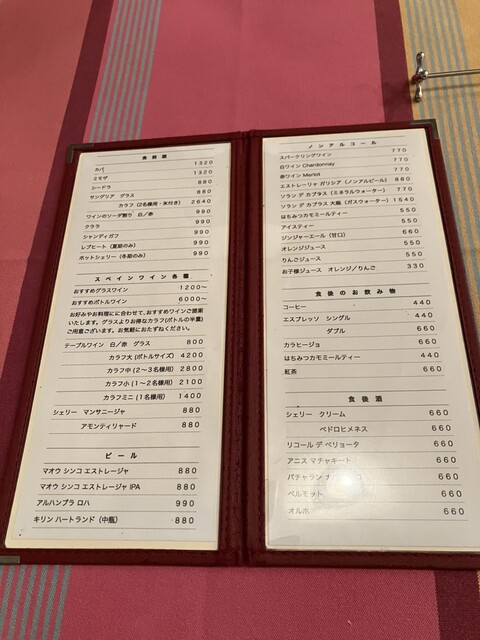 食前酒
カバ 1320
ミモザ 1320
シードラ 880
サングリア グラス 880
カラフ (2名様用・氷付き) 2640
ワインのソーダ割り 白/赤 990
クララ 990
シャンディガフ 990
レブヒート (夏期のみ) 990
ホットシェリー (冬期のみ) 990
スペインワイン各種
おすすめグラスワイン 1200~
おすすめボトルワイン 6000~
お好みやお料理に合わせて、おすすめワインご提案
いたします。グラスよりお得なカラフ(ボトルの半量)
ご用意ございます。お気軽におたずねください。
テーブルワイン 白/赤 グラス 800
カラフ大 (ボトルサイズ) 4200
カラフ中 (2~3名様用) 2800
カラフ小 (1~2名様用) 2100
カラフミニ (1名様用) 1400
シェリー マンサニージャ 880
アモンティリャード 880
ビール
マオウ シンコ エストレージャ 880
マオウ シンコ エストレージャ IPA 880
アルハンブラ ロハ 990
キリン ハートランド (中瓶) 880
ノンアルコール
スパークリングワイン 770
白ワイン Chardonnay 770
赤ワイン Merlot 770
エストレーリャ ガリシア (ノンアルビール) 880
ソラン デ カブラス (ミネラルウォーター) 770
ソラン デ カブラス 大瓶 (ガスウォーター) 1540
はちみつカモミールティー 550
アイスティー 550
ジンジャーエール (甘口) 660
オレンジジュース 550
りんごジュース 550
お子様ジュース オレンジ/りんご 330
食後のお飲み物
コーヒー 440
エスプレッソ シングル 440
ダブル 660
カラヒージョ 660
はちみつカモミールティー 440
紅茶 660
食後酒
シェリー クリーム 660
ペドロヒメネス 660
リコール デ ベリョータ 660
アニス マチャキート 660
パチャラン 660
ベルモット 660
オルホ 660